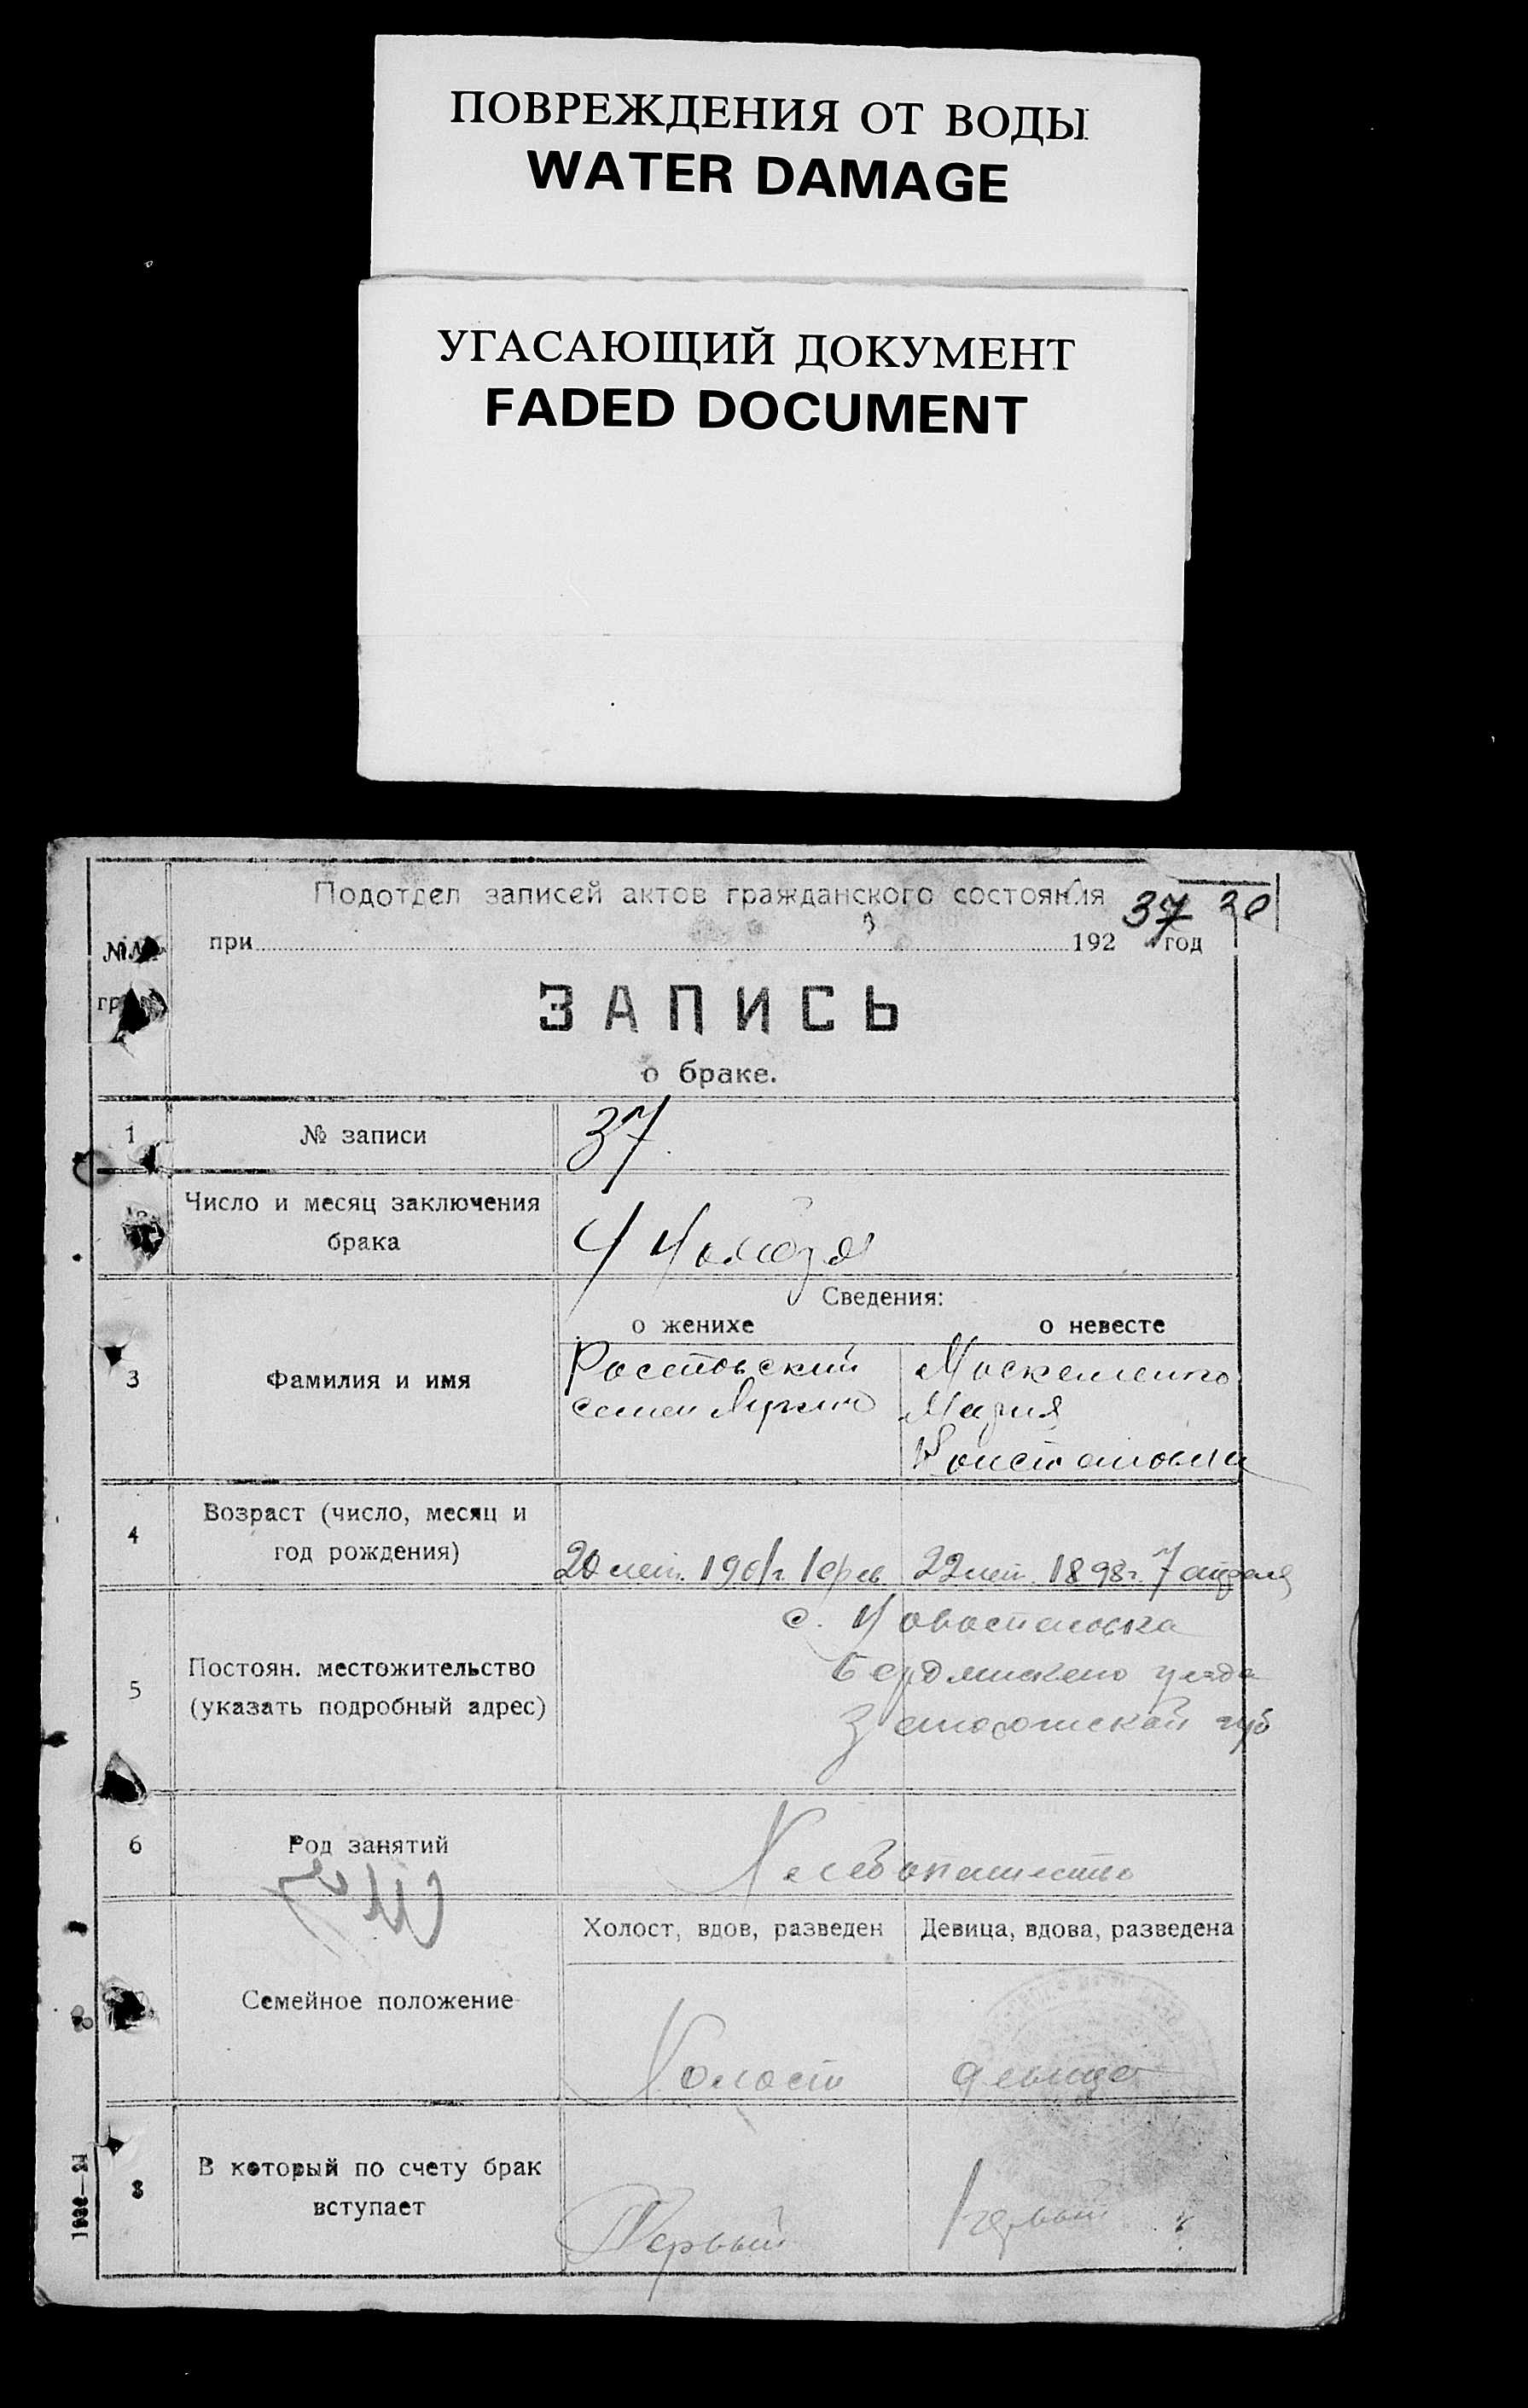 ПОВРЕЖДЕНИЯ ОТ ВОДЫ
WATER DAMAGE
УГАСАЮЩИЙ ДОКУМЕНТ
FADED DOCUMENT
Подотдел записей актов гражданского состояния
37
при 192 год
ЗАПИСЬ
о браке.
1 № записи 37
Число и месяц заключения
брака
4 Ноября
Сведения:
о женихе о невесте
3 Фамилия и имя
Ростовский
Семен
Мария
4 Возраст (число, месяц и
год рождения)
20 лет. 1901г. 1 фев 22 лет. 1898г. 7 апреля
5 Постоян. местожительство
(указать подробный адрес)
с. Новоспасовка
Бердянского уезда
губ
6 Род занятий
Хлебопашество
Холост, вдов, разведен Девица, вдова, разведена
Семейное положение
Холост девица
8 В который по счету брак
вступает
Первый первый